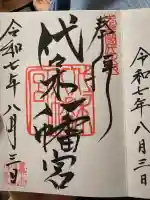 令和七年八月三日
奉拝
代々木八幡宮
令和七年八月三日